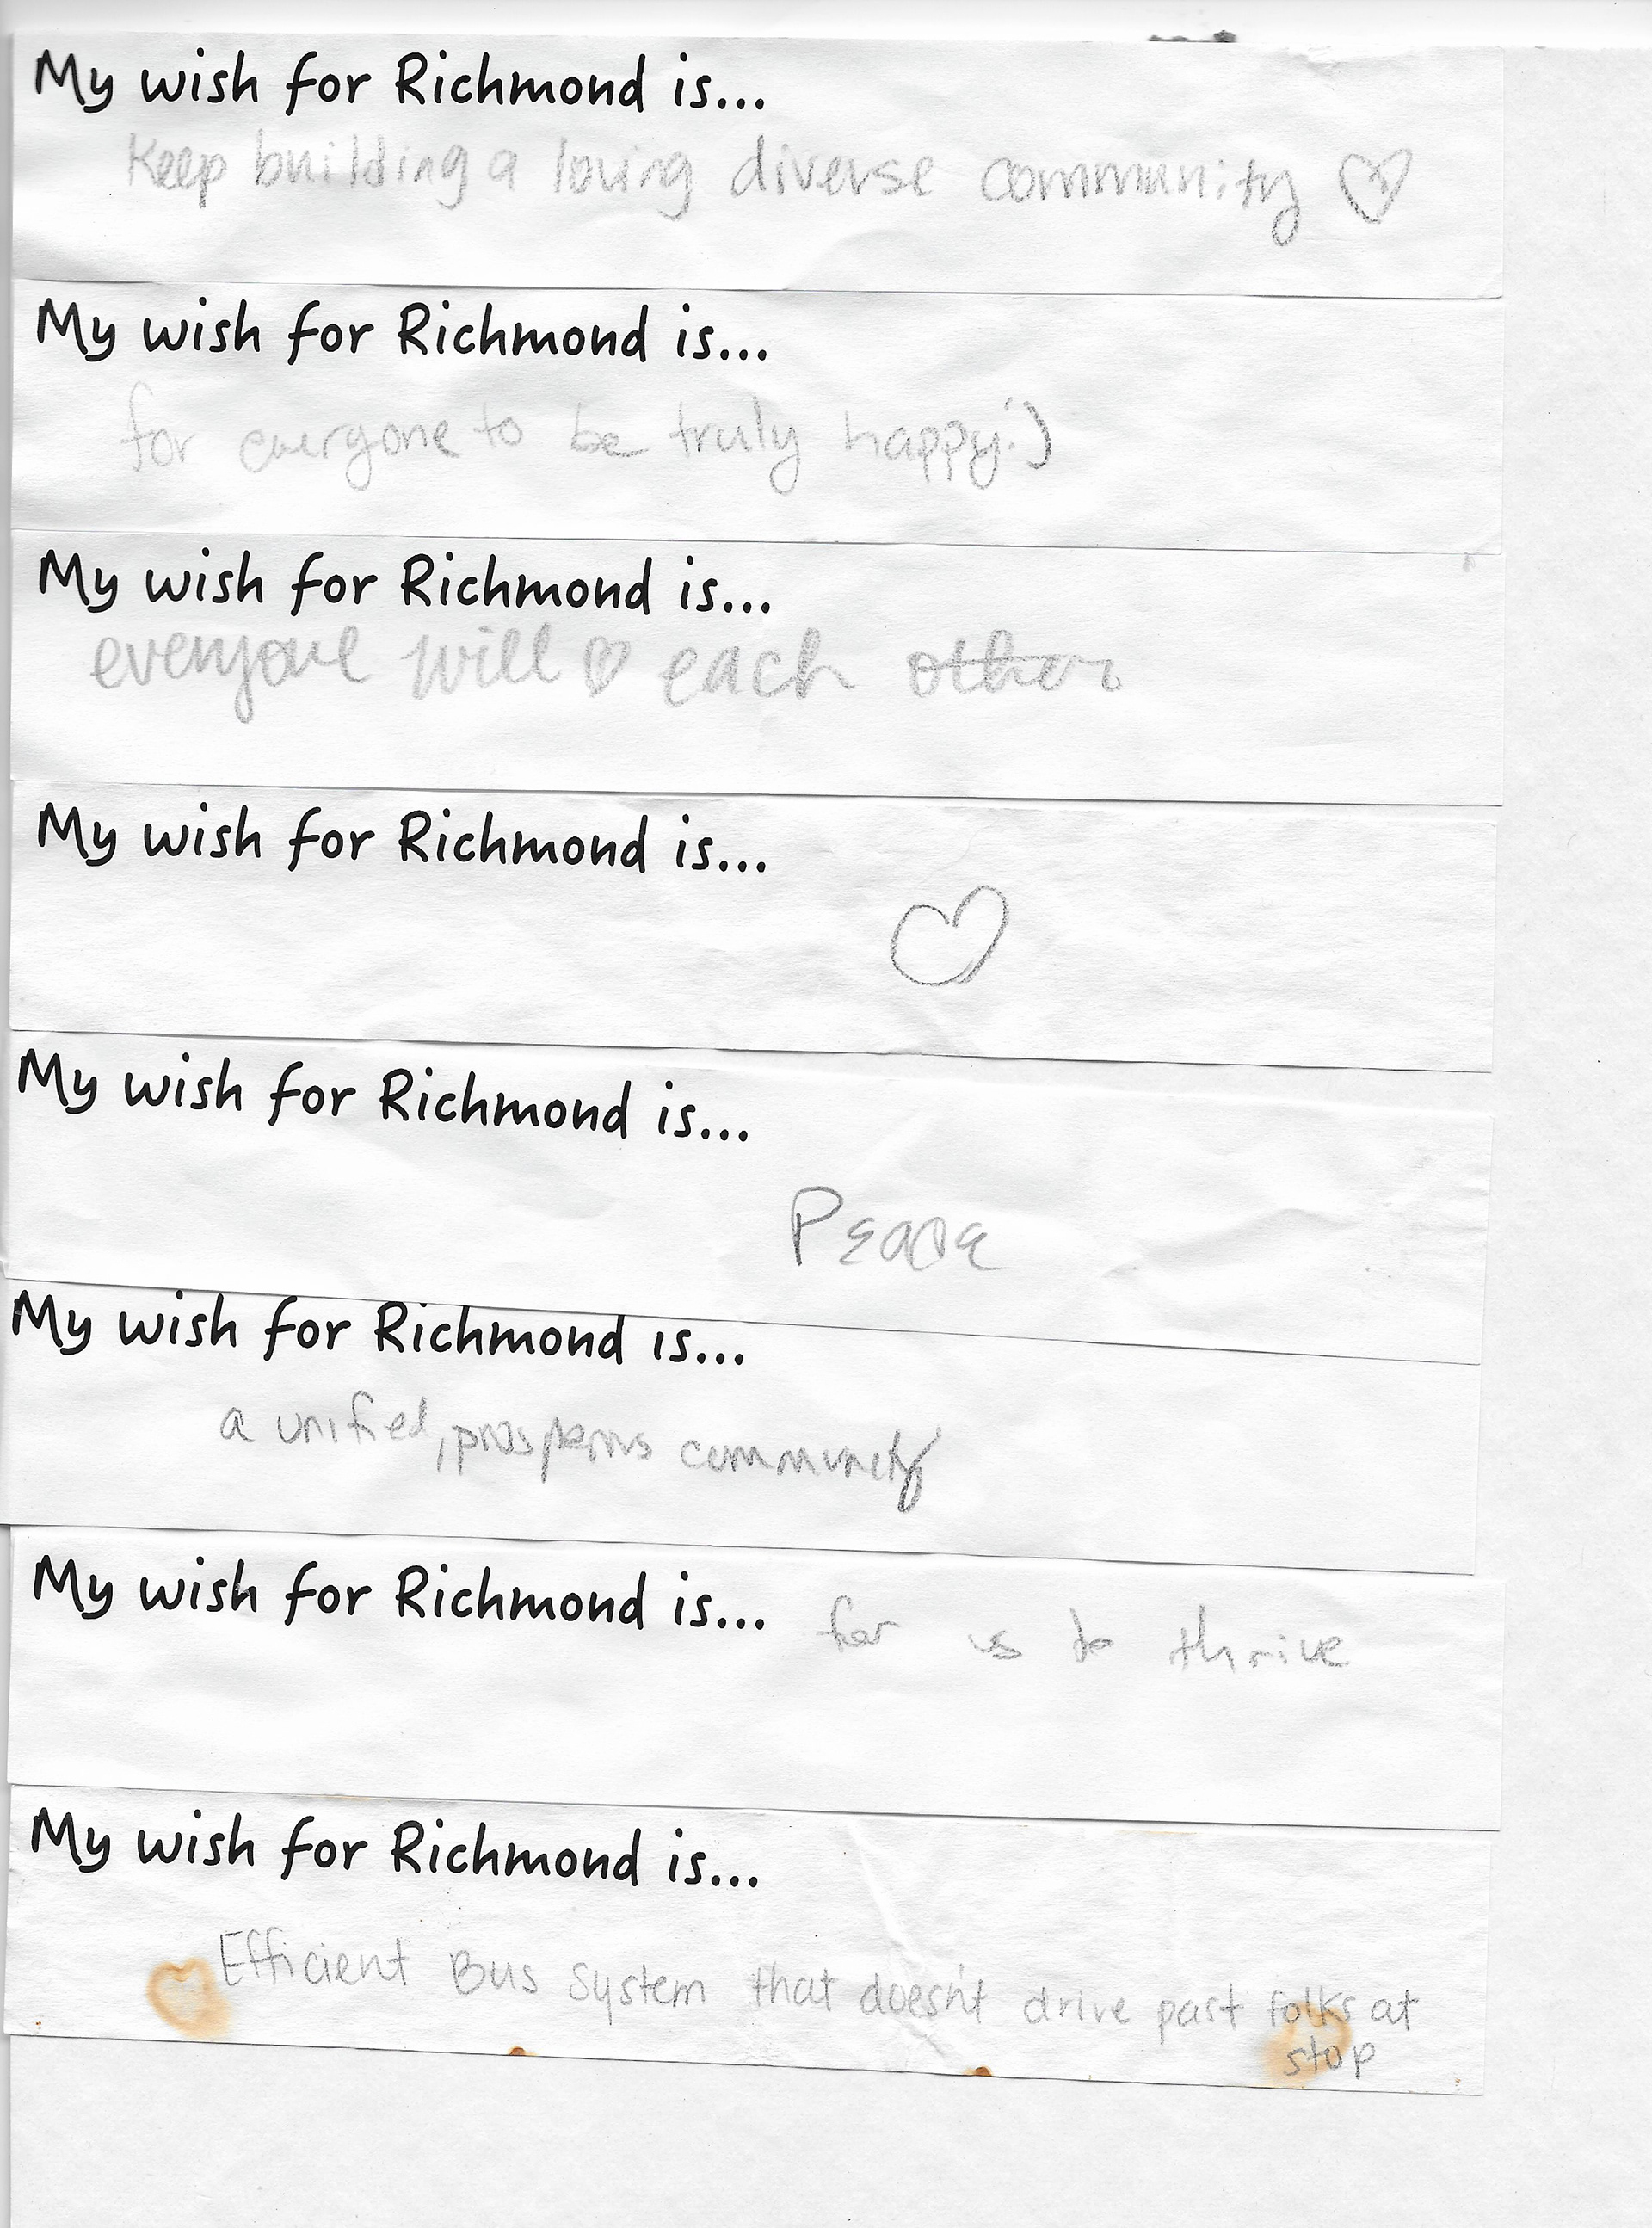 My wish for Richmond is...
Keep building a loving diverse community ♡
My wish for Richmond is...
for everyone to be truly happy :)
My wish for Richmond is...
everyone will ♡ each other
My wish for Richmond is...
♡
My wish for Richmond is...
Peace
My wish for Richmond is...
a unified, prosperous community
My wish for Richmond is... for us to thrive
My wish for Richmond is...
Efficient Bus System that doesn't drive past folks at
stop